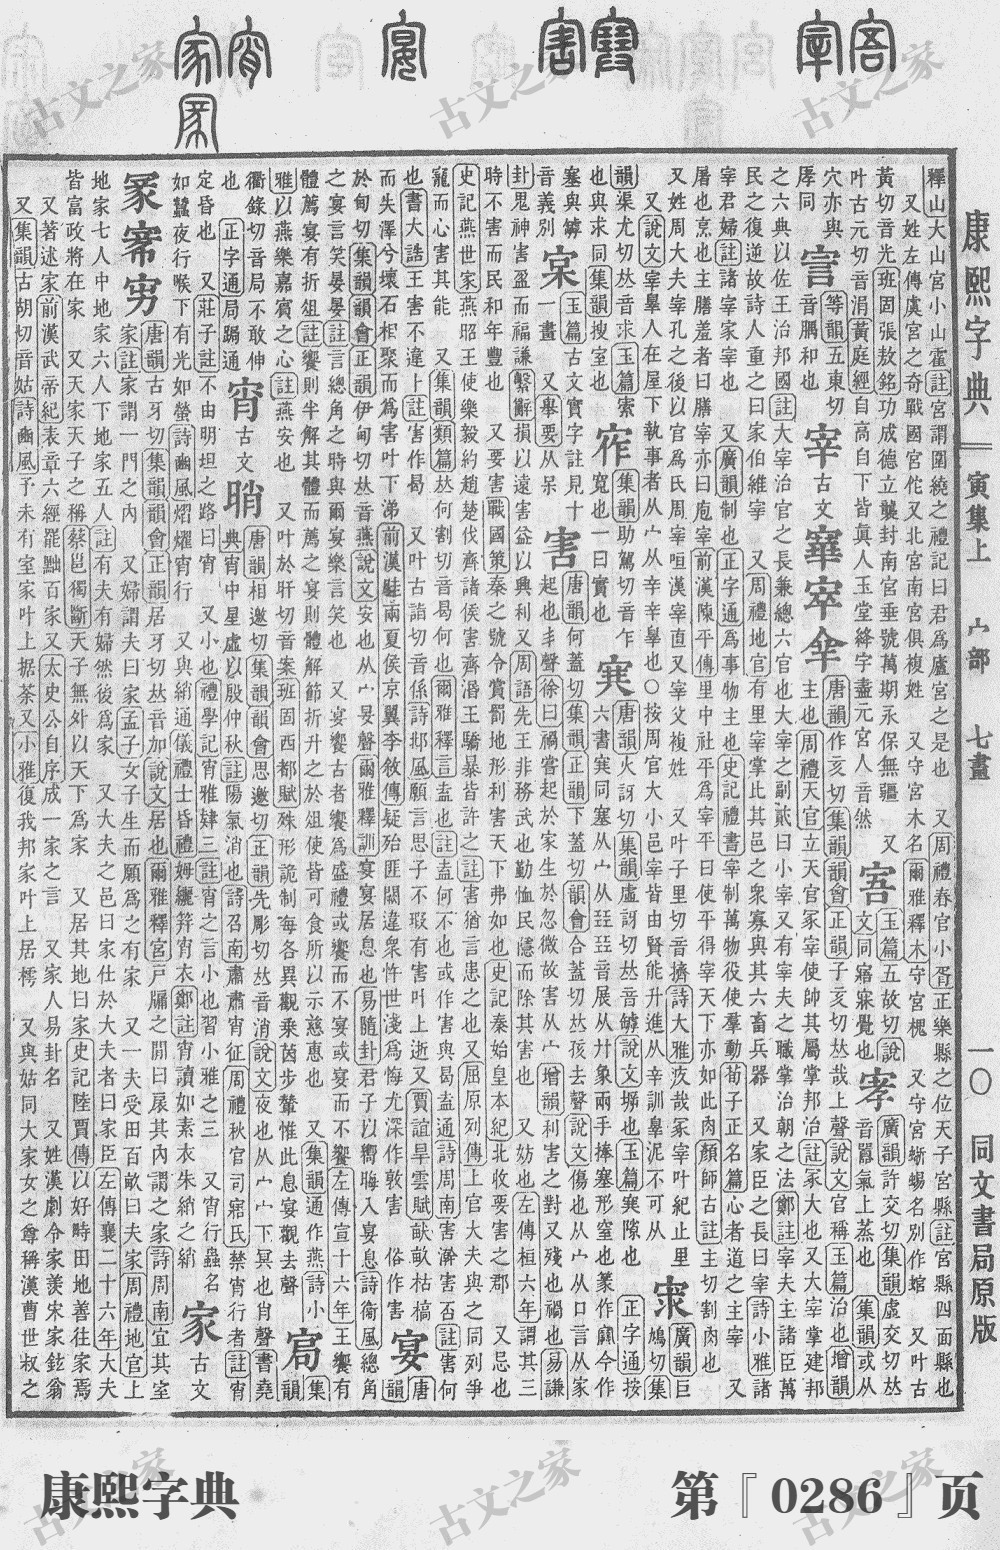 康熙字典 寅集上 宀部 七畫 一〇 同文書局原版
釋山大山宮小山霍註宮謂圍繞之禮記曰君爲廬宮之是也 又周禮春官小胥正樂縣之位天子宮縣註宮縣四面縣也
又姓左傳虞宮之奇戰國宮佗又北宮南宮俱複姓 又守宮木名爾雅釋木守宮槐 又守宮蜥蜴名別作蝘 又叶古
黃切音光班固張敖銘功成德立襲封南宮垂號萬期永保無疆 又
叶古元切音涓黃庭經自高自下皆眞人玉堂絳宇盡元宮人音然
玉篇五故切說
文同寤寐覺也
廣韻許交切集韻虛交切𠀤
音嚻氣上蒸也 集韻或从
穴亦與
庨同
等韻五東切
宰古文
唐韻作亥切集韻韻會正韻子亥切𠀤哉上聲說文官稱玉篇治也增韻
主也周禮天官立天官冢宰使帥其屬掌邦治註冢大也又大宰掌建邦
之六典以佐王治邦國註大宰治官之長兼總六官也大宰之副貳曰小宰又有宰夫之職掌治朝之法鄭註宰夫主諸臣萬
民之復逆故詩人重之曰家伯維宰 又周禮地官有里宰掌比其邑之衆寡與其六畜兵器 又家臣之長曰宰詩小雅諸
宰君婦註諸宰家宰也 又廣韻制也正字通爲事物主也史記禮書宰制萬物役使羣動荀子正名篇心者道之主宰 又
屠也烹也主膳羞者曰膳宰亦曰庖宰前漢陳平傳里中社平爲宰平曰使平得宰天下亦如此肉顏師古註主切割肉也
又姓周大夫宰孔之後以官爲氏周宰咺漢宰直又宰父複姓 又叶子里切音擠詩大雅疚哉冢宰叶紀止里
又說文宰辠人在屋下執事者从宀从辛辛辠也○按周官大小邑宰皆由賢能升進从辛訓辠泥不可从
廣韻巨
鳩切集
韻渠尤切𠀤音求玉篇索
也與求同集韻搜室也
集韻助駕切音乍
寬也一曰實也
唐韻火訝切集韻虛訝切𠀤音罅說文㙤也玉篇寒隙也
六書寒同塞从宀从㠭㠭音展从廾象兩手捧塞形窒也篆作
正字通按
塞與罅
音義別
宲玉篇古文實字註見十
一畫 又舉要从呆
害唐韻何蓋切集韻正韻下蓋切韻會合蓋切𠀤孩去聲說文傷也从宀从口言从家
起也丯聲徐曰禍嘗起於家生於忽微故害从宀增韻利害之對又殘也禍也易謙
卦鬼神害盈而福謙繫辭損以遠害益以興利又周語先王非務武也勤恤民隱而除其害也 又妨也左傳桓六年謂其三
時不害而民和年豐也 又要害戰國策秦之號令賞罰地形利害天下弗如也史記秦始皇本紀北收要害之郡 又忌也
史記燕世家燕昭王使樂毅約趙楚伐齊諸侯害齊湣王驕暴皆許之註害猶言患之也又屈原列傳上官大夫與之同列爭
寵而心害其能 又集韻類篇𠀤何割切音曷何也爾雅釋言盍也註盍何不也或作害與曷盍通詩周南害澣害否註害何
也書大誥王害不違卜註害作曷 又叶古詣切音係詩邶風願言思子不瑕有害叶上逝又賈誼旱雲賦畎畝枯槁
而失澤兮壤石相聚而爲害叶下涕前漢駐兩夏侯京翼李敘傳疑殆匪闕違衆忤世淺爲悔尤深作敦害 俗作害
宴唐
韻
於甸切集韻韻會正韻伊甸切𠀤音燕說文安也从宀妟聲爾雅釋訓宴宴居息也易隨卦君子以嚮晦入宴息詩衛風總角
之宴言笑晏晏註言總角之時與爾宴樂言笑也 又宴饗古者饗爲盛禮或饗而不宴或宴而不饗左傳宣十六年王饗有
體薦宴有折俎註饗則半解其體而薦之宴則體解節折升之於俎使皆可食所以示慈惠也 又集韻通作燕詩小
雅以燕樂嘉賓之心註燕安也 又叶於肝切音案班固西都賦殊形詭制每各異觀乘茵步輦惟此息宴觀去聲
集
韻
衢錄切音局不敢伸
也 正字通局跼通
宵古文
唐韻相邀切集韻韻會思邀切正韻先彫切𠀤音消說文夜也从宀宀下冥也肖聲書堯
典宵中星虛以殷仲秋註陽氣消也詩召南肅肅宵征周禮秋官司寤氏禁宵行者註宵
定昏也 又莊子註不由明坦之路曰宵 又小也禮學記宵雅肄三註宵之言小也習小雅之三 又宵行蟲名
如蠶夜行喉下有光如螢詩豳風熠燿宵行 又與綃通儀禮士昏禮姆纚笄宵衣鄭註宵讀如素衣朱綃之綃
家古文
唐韻古牙切集韻韻會正韻居牙切𠀤音加說文居也爾雅釋宮戸牖之閒曰扆其內謂之家詩周南宜其室
家註家謂一門之內 又婦謂夫曰家孟子女子生而願爲之有家 又一夫受田百畝曰夫家周禮地官上
地家七人中地家六人下地家五人註有夫有婦然後爲家 又大夫之邑曰家仕於大夫者曰家臣左傳襄二十六年大夫
皆富政將在家 又天家天子之稱蔡邕獨斷天子無外以天下爲家 又居其地曰家史記陸賈傳以好畤田地善往家焉
又著述家前漢武帝紀表章六經罷黜百家又太史公自序成一家之言 又家人易卦名 又姓漢劇令家羨宋家鉉翁
又集韻古胡切音姑詩豳風予未有室家叶上据荼又小雅復我邦家叶上居樗 又與姑同大家女之尊稱漢曹世叔之
康熙字典
第『0286』页
古文之家
古文之家
古文之家
古文之家
古文之家
古文之家